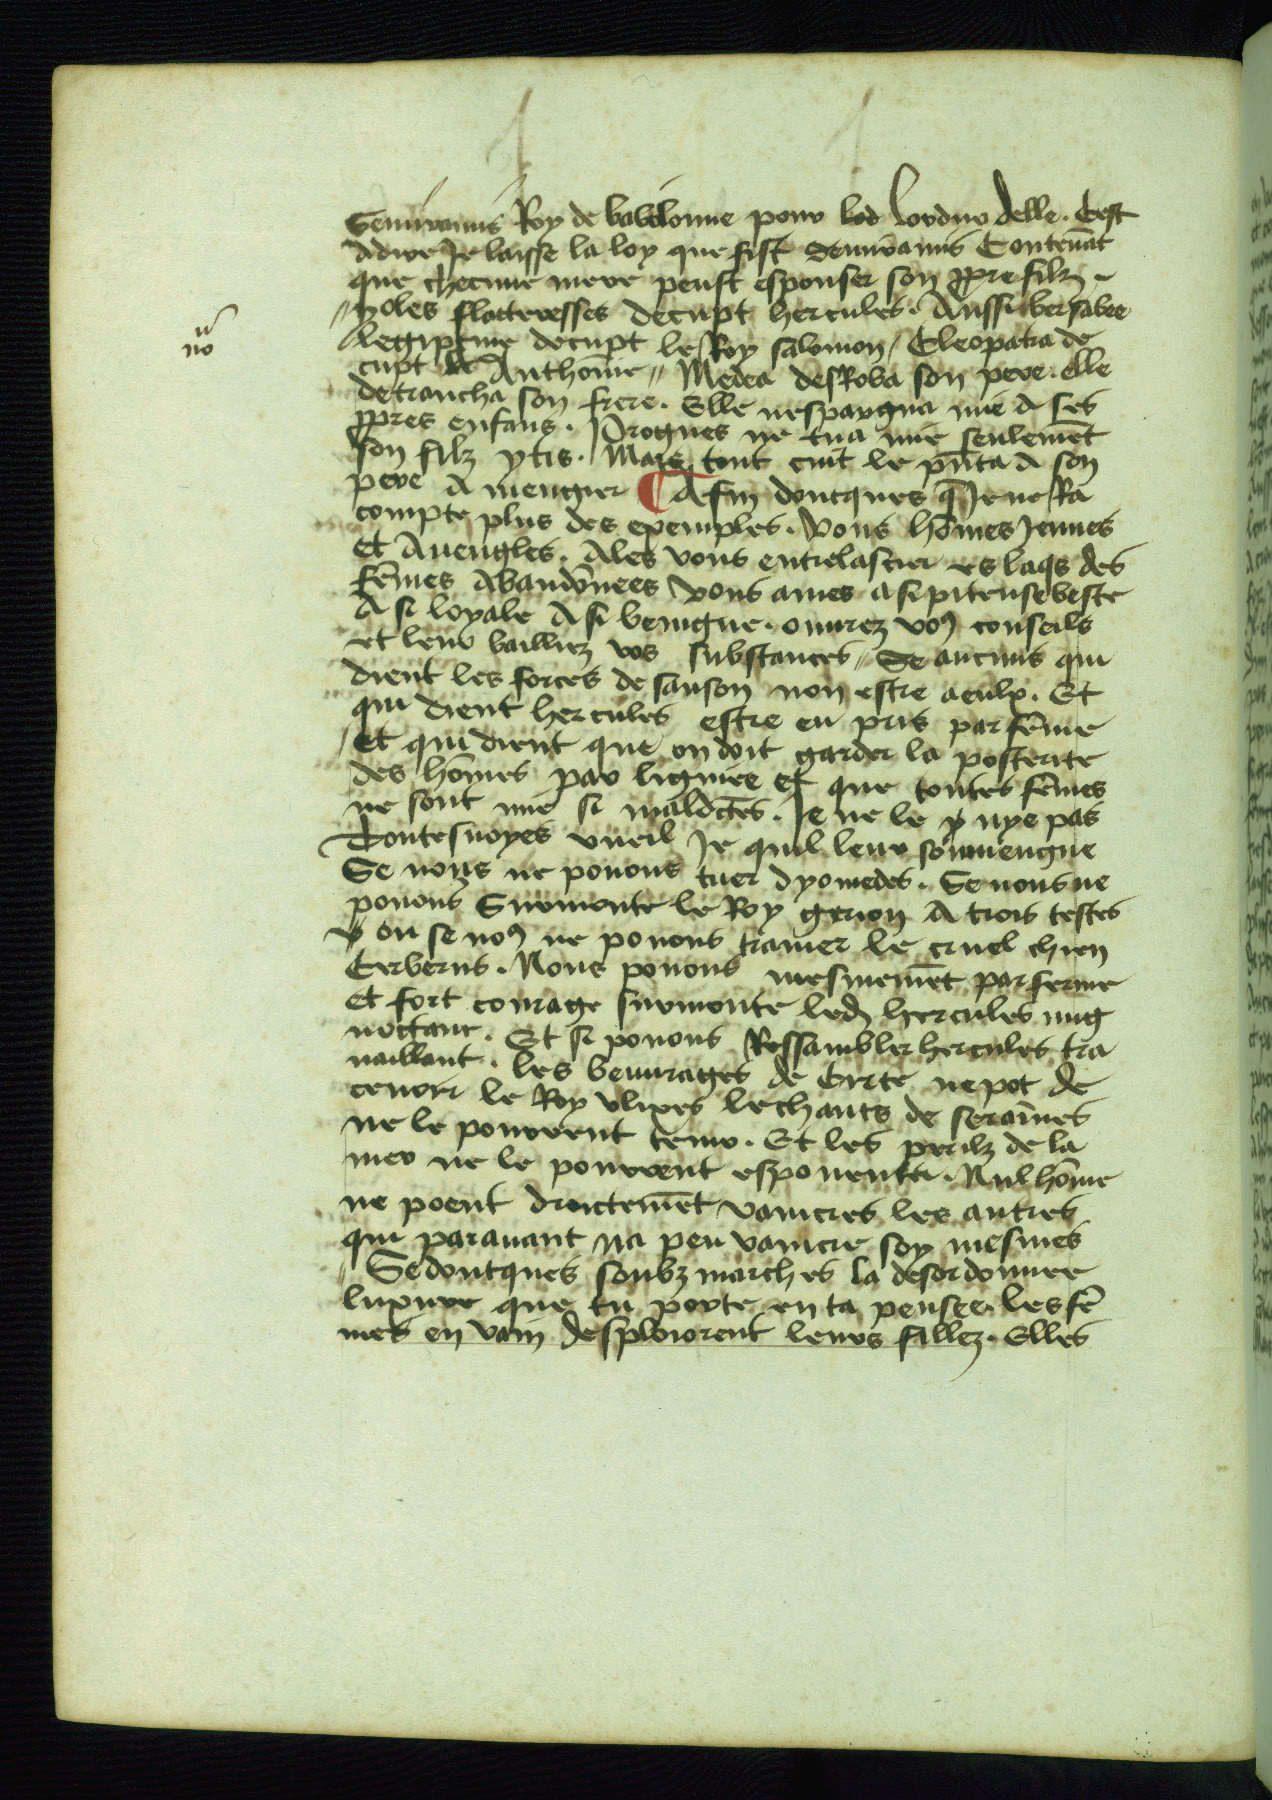 Semiramis Roy de babilonne pour lod lordur delle. Cest
adire Je laisse la loy que fist Semiramis Contenāt
que checune mere peust esponser son ppre filz
yoles flatteresses decupt hercules. Aussi bersabee
legiptime decupt le Roy salomon / Cleopatra de
cupt Anthoīne // Medea desRoba son pere. elle
detrancha son frere. Elle nespargna mie A ses
ppres enfans. Progues ne tua mie seulemēt
son filz ytis. Mais tout cuit le pn̄ta A son
pere A mengier ¶ Afin doncques q̄ Je ne Ra
compte plus des exemples. Vous hōmes Jeunes
Et Aueugles. Ales vous entrelascier es laqs des
fēmes Abandōnees Vous ames a si piteuse beste
A si loyale A si benigne. ouurez voꝰ conseils
et leur bailliez vos substances // Se aucuns qui
dient les forces de sanson non estre a eulx. Et
qui dient hercules estre eu pris par fēme
Et qui dient que on doit garder la posterite
des hōmes par lignie et que toutes fēmes
ne sont mie si maldctēs. Je ne le y nye pas
Toutesuoyes vueil Je quil leur souuiengne
Se nous ne pouons tuer dyomedes. Se nous ne
pouons Surmonte le Roy gerion A trois testes
ou se noꝰ ne pouons trainer le cruel chien
Cerberus. Nous pouons mesmemēt par ferme
Et fort courage surmonte led hercules nug
noctant. Et si pouons Ressambler hercules tra
uaillant. les beuurages de Circe ne pot de
cenoir le Roy vlixes le chants de seraīnes
ne le pourrent tenir. Et les perilz de la
mer ne le pourrent espouenta. Nul hōme
ne poent droictemēt vaincres les autres
qui parauant na peu vaincre soy mesmes
Se doncques soubz marches la desordonnee
luxure que tu porte en ta pensee. les fē
mes en vain desploiorent leurs fillez. Elles